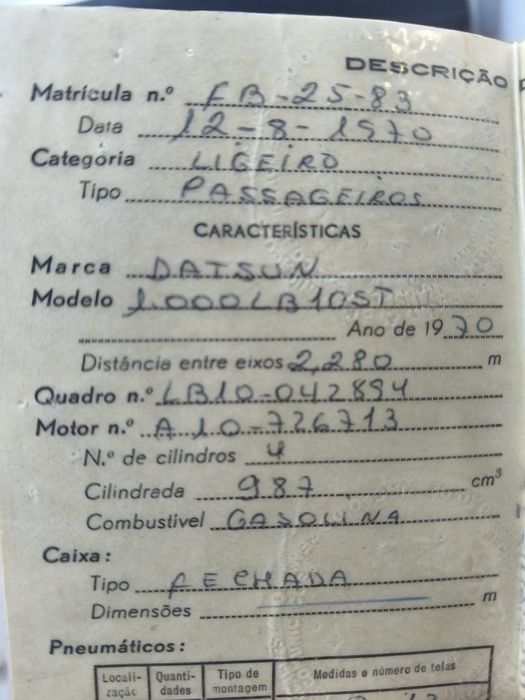 DESCRIÇÃO
Matrícula n.º FB-25-83
Data 12-8-1970
Categoria LIGEIRO
Tipo PASSAGEIROS
CARACTERÍSTICAS
Marca DATSUN
Modelo 1.000 LB10ST
Ano de 1970
Distância entre eixos 2,280 m
Quadro n.º LB10-042894
Motor n.º A10-726713
N.º de cilindros 4
Cilindrada 987 cm³
Combustivel GASOLINA
Caixa:
Tipo FECHADA
Dimensões m
Pneumáticos:
Locali- Quanti- Tipo de Medidas e número de telas
zação dades montagem